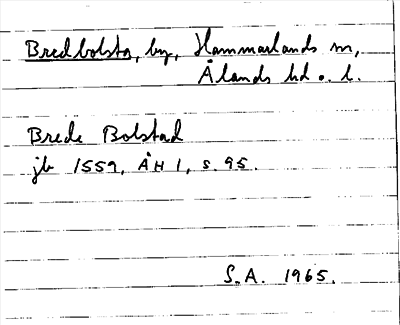 Bredbolsta, by, Hammarlands sn,
Ålands hd o. l.
Brede Bolstad
jb 1559, ÅH 1, s. 95.
S.A. 1965.